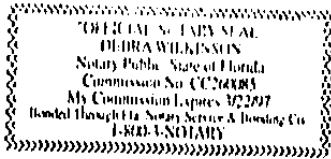 "OFFICIAL NOTARY SEAL
DEBRA WILKINSON
Notary Public State of Florida
Commission No. CC260085
My Commission Expires 3/22/97
Bonded Through Fla. Notary Service & Bonding Co.
1-800-3-NOTARY